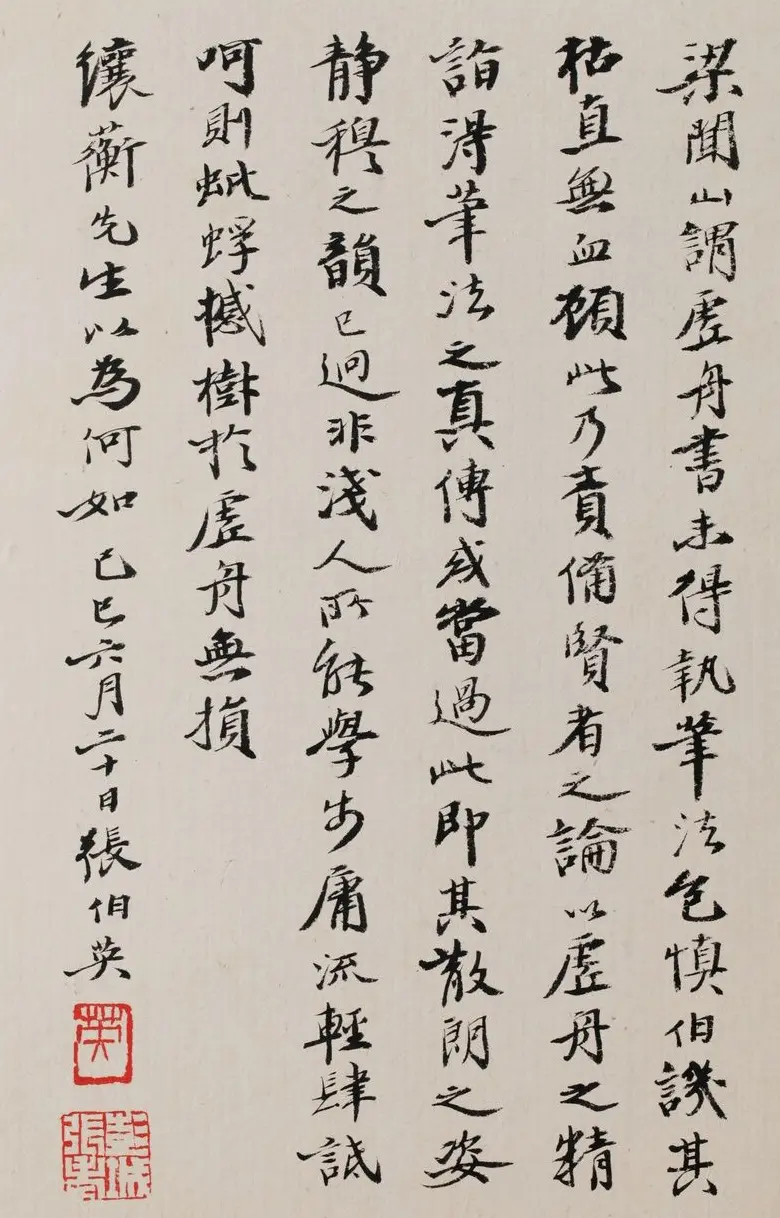 梁聞山謂虛舟書未得執筆法包慎伯譏其
枯直無血顧此乃責備賢者之論以虛舟之精
詣得筆法之真傳或當過此即其散朗之姿
靜穆之韻已迥非淺人所能學步庸流輕肆詆
呵則蚍蜉撼樹於虛舟無損
纕蘅先生以為何如己巳六月二十日張伯英
英